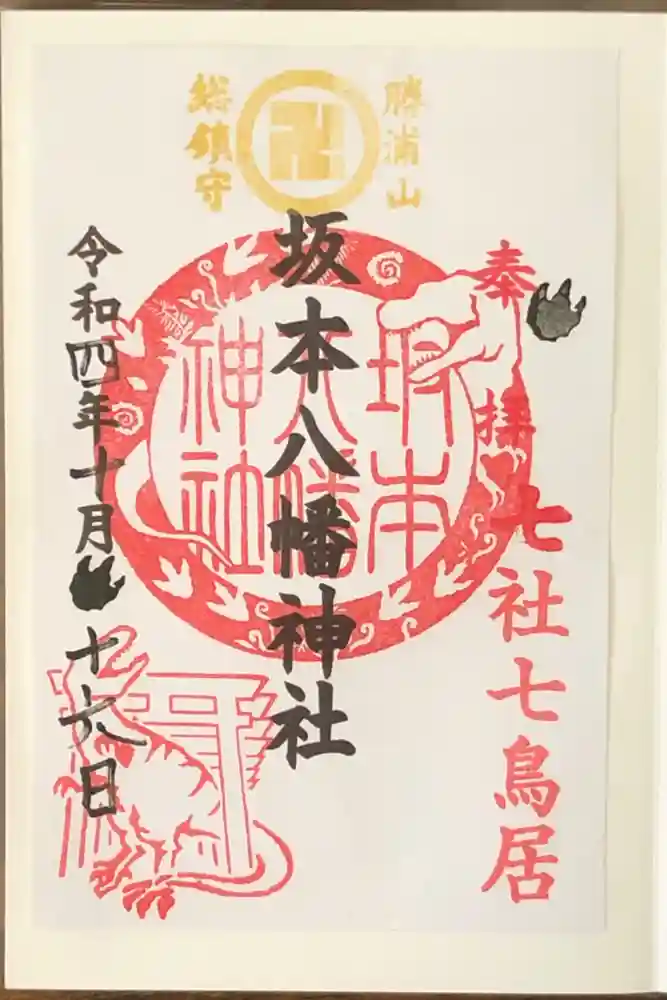 勝浦山
卍
総鎮守
奉拝
七社七鳥居
坂本八幡神社
坂本
八幡
神社
令和四年十月十六日